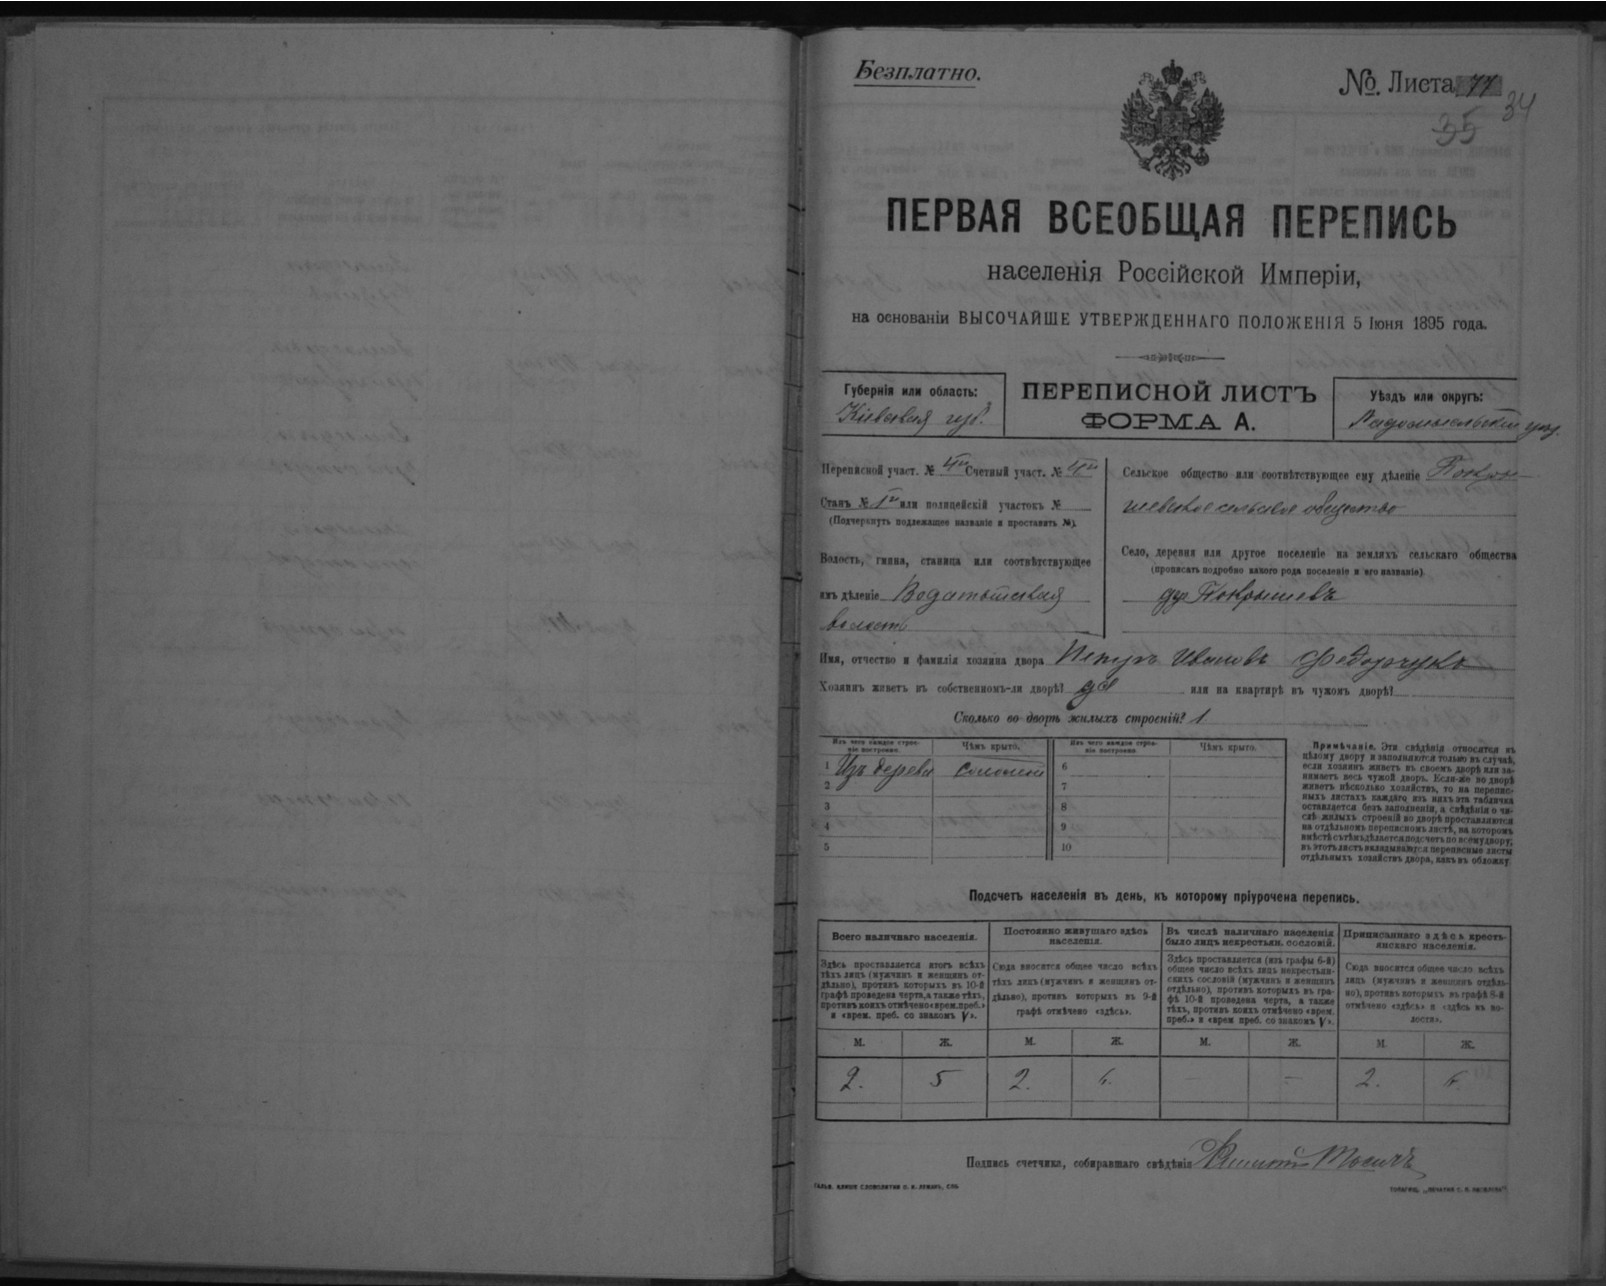 Безплатно.
№ Листа 77
34
35
ПЕРВАЯ ВСЕОБЩАЯ ПЕРЕПИСЬ
населенія Россійской Имперіи,
на основаніи ВЫСОЧАЙШЕ УТВЕРЖДЕННАГО ПОЛОЖЕНІЯ 5 Іюня 1895 года.
Губернія или область:
Кіевская губ.
ПЕРЕПИСНОЙ ЛИСТЪ
ФОРМА А.
Уѣздъ или округъ:
Радомысльскій уѣз.
Переписной участ. № 4й Счетный участ. № 4й
Станъ № 1й или полицейскій участокъ №
(Подчеркнуть подлежащее названіе и проставить №).
Волость, гмина, станица или соотвѣтствующее
имъ дѣленіе Водотыйская
волость
Сельское общество или соотвѣтствующее ему дѣленіе Покры-
шевское сельское общество
Село, деревня или другое поселеніе на земляхъ сельскаго общества
(прописать подробно какого рода поселеніе и его названіе)
дер Покрышевъ
Имя, отчество и фамилія хозяина двора Петръ Ивановъ Федорчукъ
Хозяинъ живетъ въ собственномъ-ли дворѣ? да или на квартирѣ въ чужомъ дворѣ?
Сколько во дворѣ жилыхъ строеній? 1
Изъ чего каждое строе-
ніе построено.
Чѣмъ крыто.
Изъ чего каждое строе-
ніе построено.
Чѣмъ крыто.
1 Изъ дерева соломой 6
2 7
3 8
4 9
5 10
Примѣчаніе. Эти свѣдѣнія относятся къ
цѣлому двору и заполняются только въ случаѣ,
если хозяинъ живетъ въ своемъ дворѣ или за-
нимаетъ весь чужой дворъ. Если-же во дворѣ
живетъ нѣсколько хозяйствъ, то на перепис-
ныхъ листахъ каждаго изъ нихъ эта табличка
оставляется безъ заполненія, а свѣдѣнія о чи-
слѣ жилыхъ строеній во дворѣ проставляются
на отдѣльномъ переписномъ листѣ, на которомъ
вмѣстѣ съ тѣмъ дѣлается подсчетъ по всему двору;
въ этотъ листъ вкладываются переписные листы
отдѣльныхъ хозяйствъ двора, какъ въ обложку.
Подсчетъ населенія въ день, къ которому пріурочена перепись.
Всего наличнаго населенія.
Здѣсь проставляется итогъ всѣхъ
тѣхъ лицъ (мужчинъ и женщинъ от-
дѣльно), противъ которыхъ въ 10-й
графѣ проведена черта, а также тѣхъ,
противъ коихъ отмѣчено «врем. преб.»
и «врем. преб. со знакомъ V».
Постоянно живущаго здѣсь
населенія.
Сюда вносится общее число всѣхъ
тѣхъ лицъ (мужчинъ и женщинъ от-
дѣльно), противъ которыхъ въ 9-й
графѣ отмѣчено «здѣсь».
Въ числѣ наличнаго населенія
было лицъ некрестьян. сословій.
Здѣсь проставляется (изъ графы 6-й)
общее число всѣхъ лицъ некрестьян-
скихъ сословій (мужчинъ и женщинъ
отдѣльно), противъ которыхъ въ гра-
фѣ 10-й проведена черта, а также
тѣхъ, противъ коихъ отмѣчено «врем.
преб.» и «врем преб. со знакомъ V».
Приписаннаго здѣсь кресть-
янскаго населенія.
Сюда вносится общее число всѣхъ
лицъ (мужчинъ и женщинъ отдѣль-
но), противъ которыхъ въ графѣ 8-й
отмѣчено «здѣсь» и «здѣсь въ во-
лости».
М. Ж. М. Ж. М. Ж. М. Ж.
2. 5 2. 6. — — 2. 6.
Подпись счетчика, собиравшаго свѣдѣнія